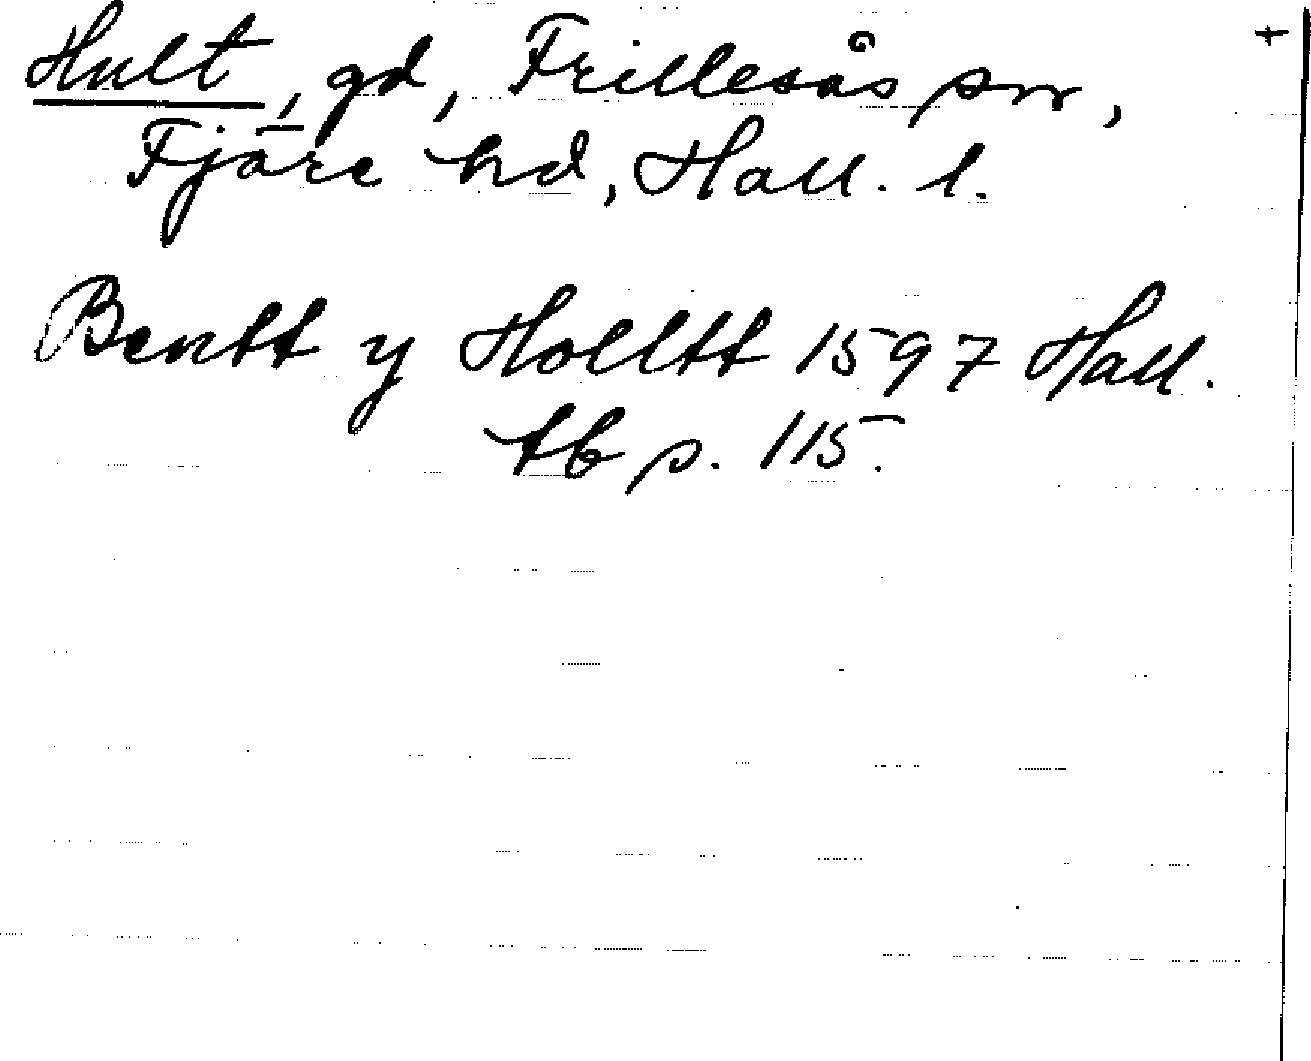 Hult, gd, Frillesås sn,
Fjäre hd, Hall. l.
Bentt y Holltt 1597 Hall.
tb p. 115.